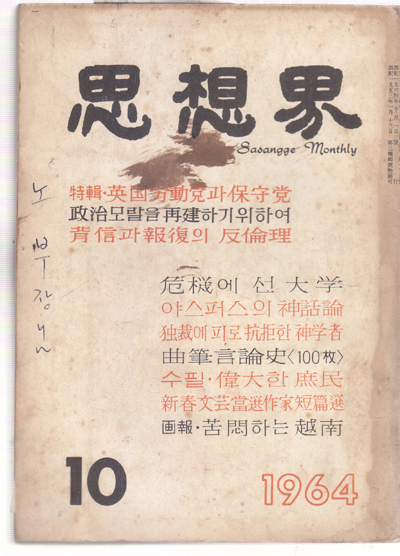 思想界
Sasangge Monthly
特輯·英国労動党과保守党
政治모랄을再建하기위하여
背信과報復의 反倫理
危機에 선 大学
야스퍼스의 神話論
独裁에피로抗拒한神学者
曲筆言論史〈100枚〉
수필·偉大한 庶民
新春文芸當選作家短篇選
画報·苦悶하는 越南
10
1964